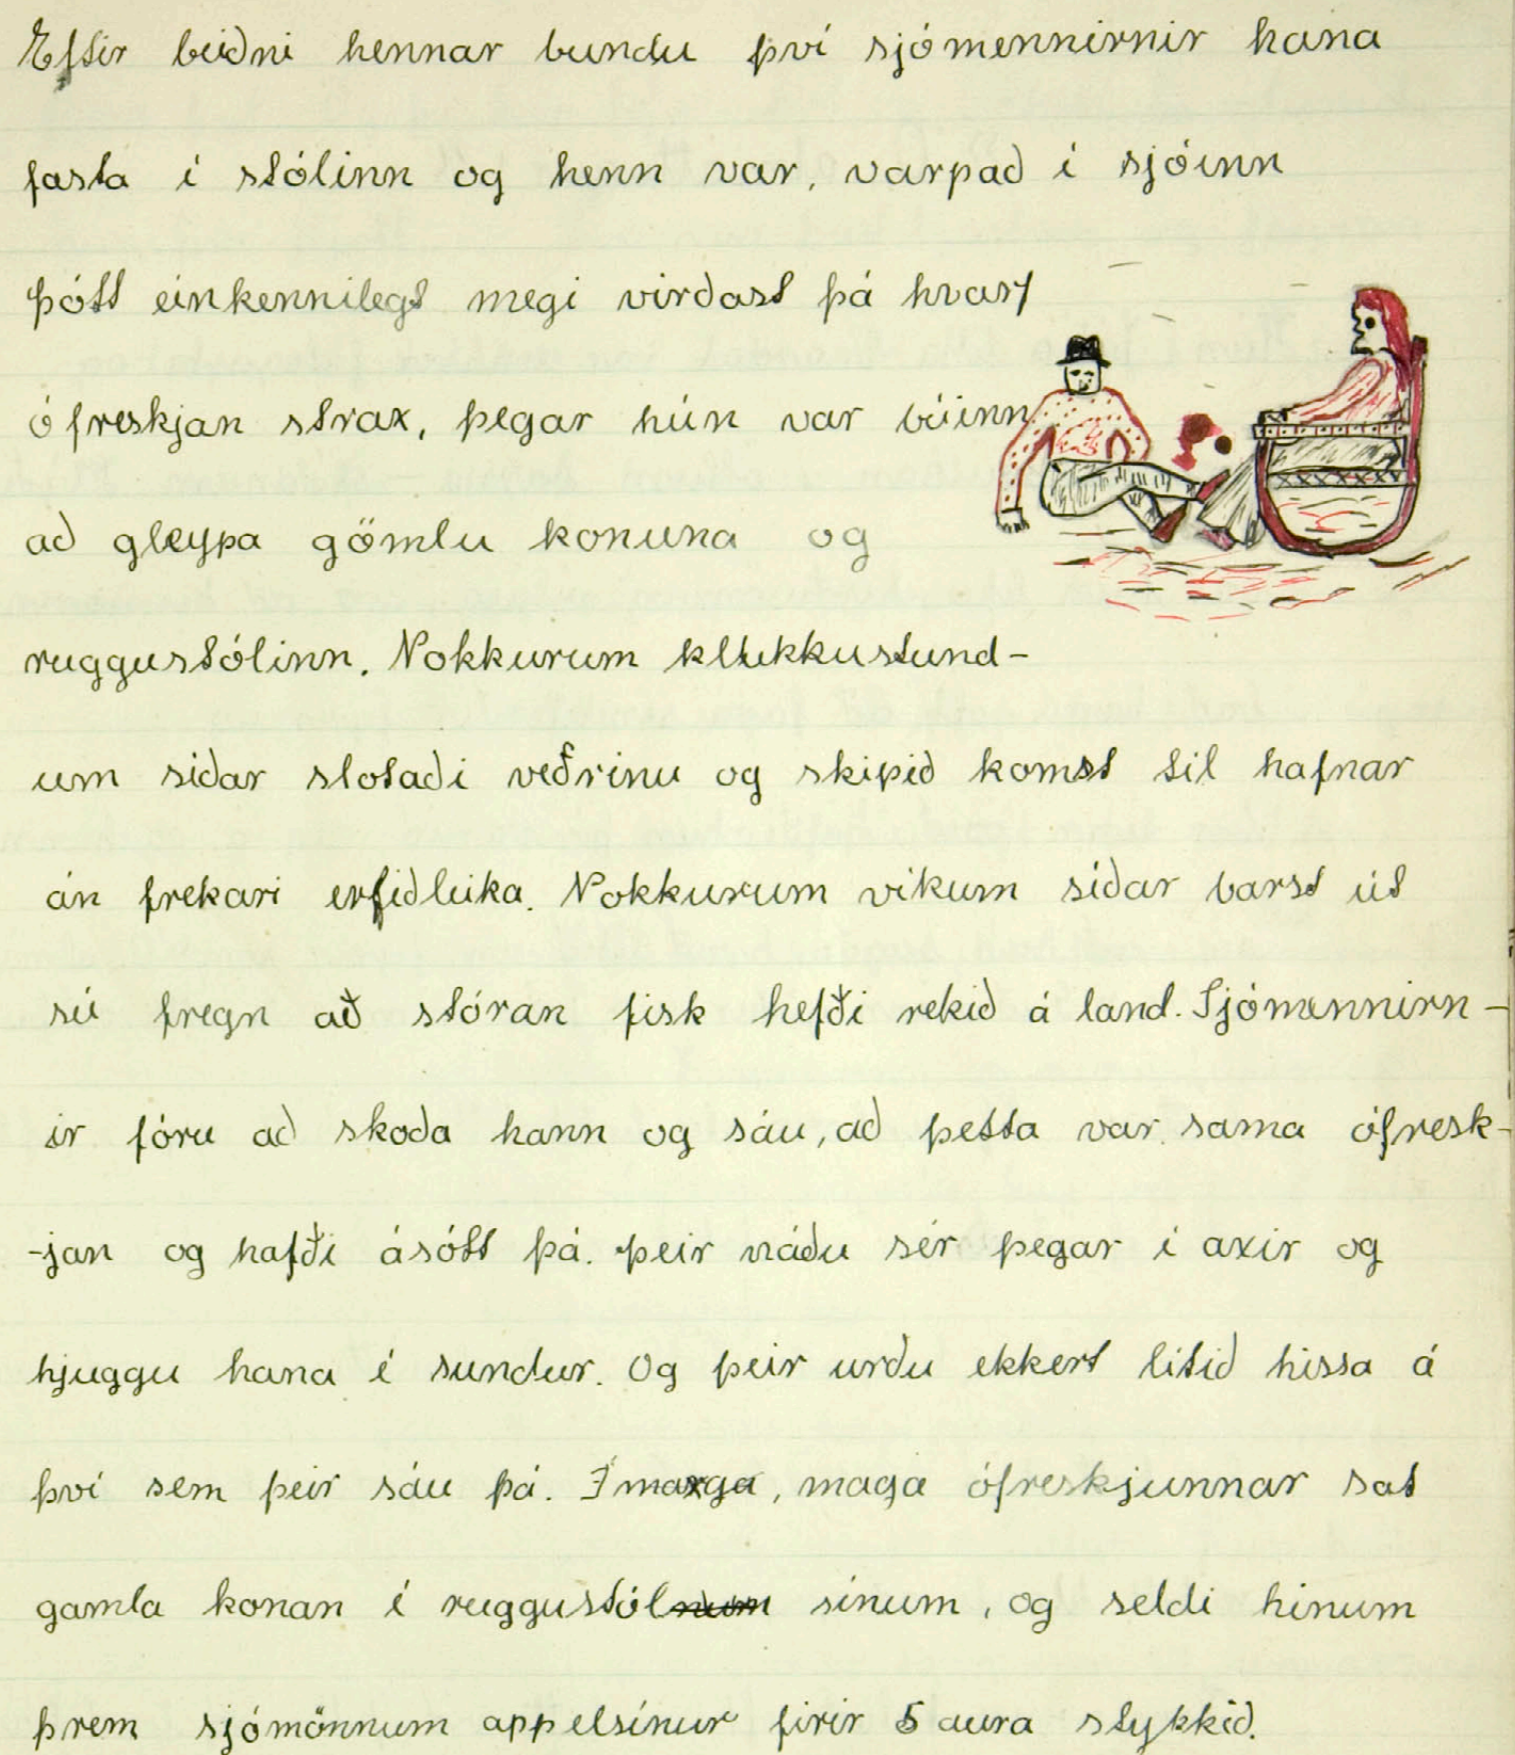 Eftir beiðni hennar bundu því sjómennirnir hana
fasta í stólinn og henn var, varpað í sjóinn
þótt einkennilegt megi virðast þá hvarf
ófreskjan strax, þegar hún var búinn
að gleypa gömlu konuna og
ruggustólinn. Nokkurum klukkustund-
um síðar slotaði veðrinu og skipið komst til hafnar
án frekari erfiðleika. Nokkurum vikum síðar barst út
sú fregn að stóran fisk hefði rekið á land. Sjómennirn-
ir fóru að skoða hann og sáu, að þetta var sama ófresk-
-jan og hafði ásótt þá. þeir náðu sér þegar í axir og
hjuggu hana í sundur. Og þeir urðu ekkert lítið hissa á
því sem þeir sáu þá. Í marga, maga ófreskjunnar sat
gamla konan í ruggustólnum sínum, og seldi hinum
þrem sjómönnum appelsínur firir 5 aura stykkið.